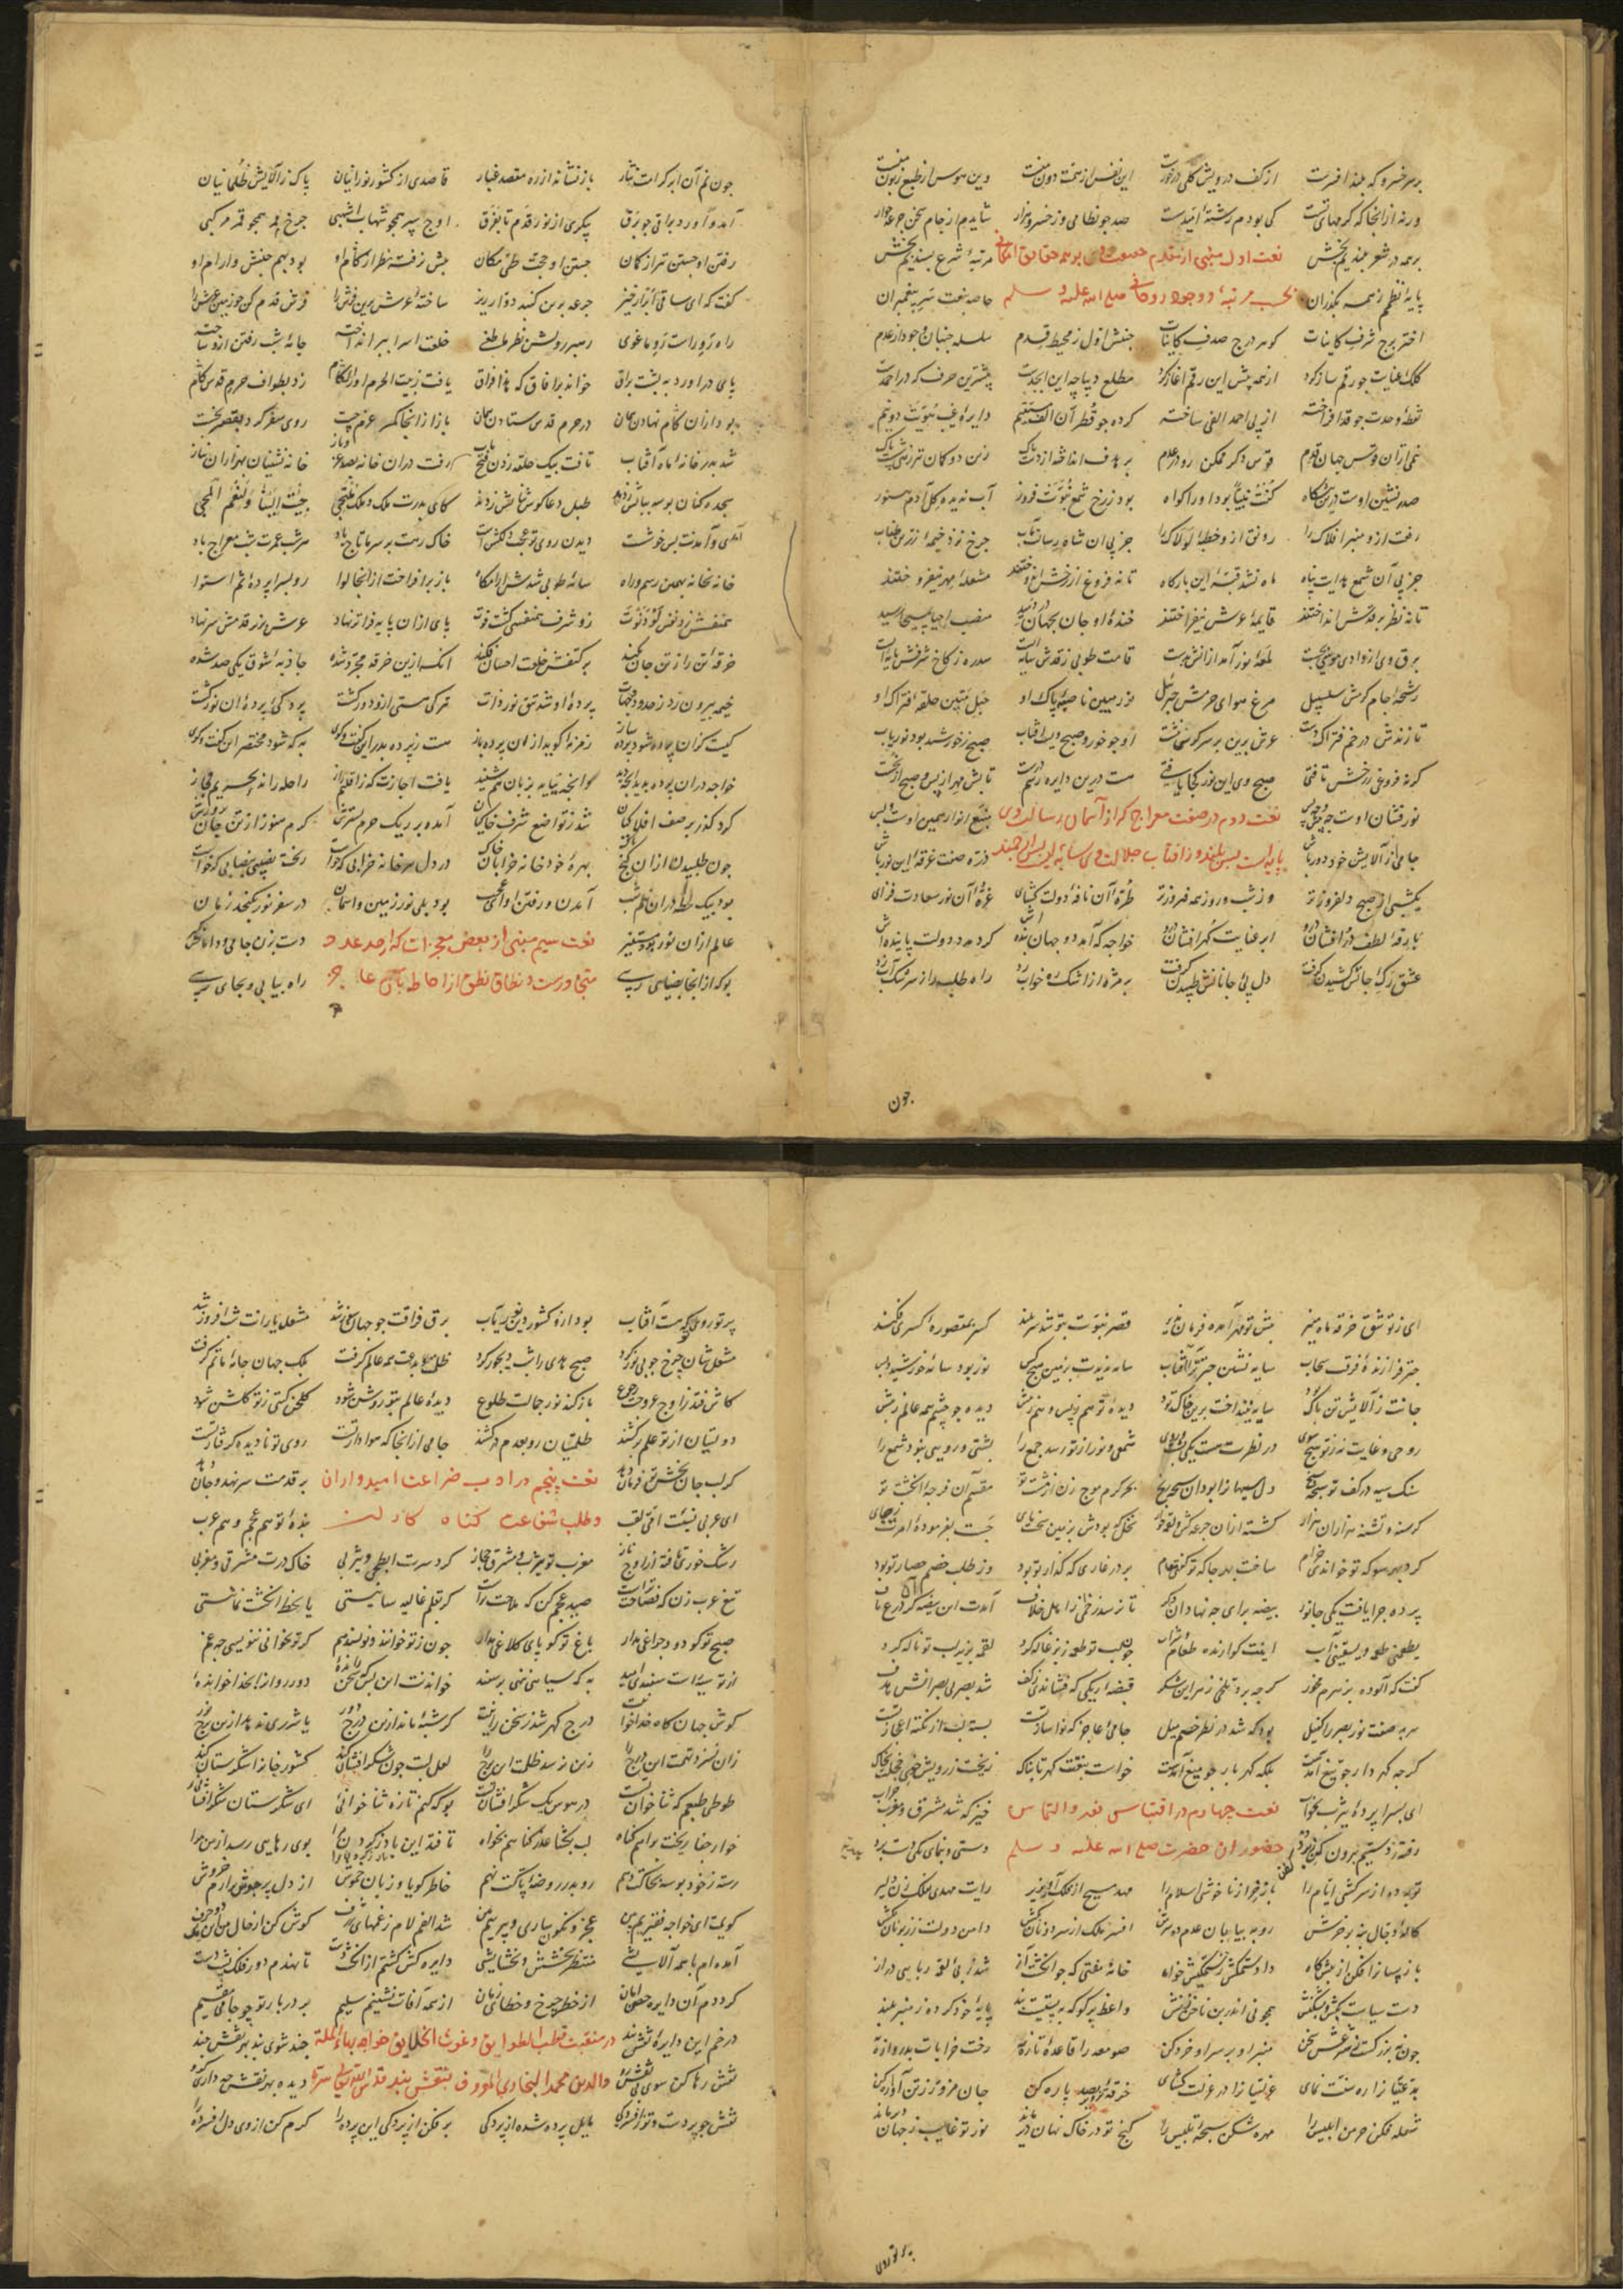 بر سر خسرو که بلند افسرست از کف درویش گلی درخورست این نفس از همت دون منست وین هوس از طبع زبون منست
ورنه از آنجا که کرمهای تست کی بودم رشته امیدست صد چو نظامی و ز خسرو هزار شایدم از جام سخن جرعه خوار
بر همه در شعر بلندیم بخش نعت اول مرتبهٔ شرع پسندیم بخش
پایهٔ نظمم ز همه بگذران بحسب مرتبه و وجود روحانی صلی الله علیه و سلم خاصه بنعت سر پیغمبران
اختر برج شرف کاینات گوهر درج صدف کاینات جنبش اول ز محیط قدم سلسله جنبان وجود از عدم
کلک عنایت چو رقم ساز کرد از همه پیش این رقم آغاز کرد مطلع دیباچه این ابجدست پیشترین حرف که در احمدست
نقطهٔ وحدت چو قد افراخته از پی احمد الفی ساخته کرده چو قطر آن الف مستقیم دایرهٔ غیب هویت دو نیم
نیمی از آن قوس جهان قدم قوس دگر ممکن رو در عدم بر هدف انداخته از دست پاک زین دو کمان تیر
صدرنشین اوست درین پیشگاه کنت نبیا بود او را گواه بود ز رخ شمع نبوت فروز آب ندیده گل آدم هنوز
رفت ازو منبر افلاک را رونق ازو خطبهٔ لولاک را جز پی آن شاه رسالت مآب چرخ نزد خیمهٔ زرین طناب
جز پی آن شمع هدایت پناه ماه نشد قبهٔ این بارگاه تا نه فروغ از رخش اندوختند مشعلهٔ مهر نیفروختند
تا نه نظر بر قدش انداختند قایمهٔ عرش نیفراختند خندهٔ او جان بجهان دردمید منصب احیا بمسیحا رسید
برق وی از وادی موسی بجست لمعهٔ نور آمد از آتش بدست قامت طوبی ز قدش سایه ایست سدره ز کاخ شرفش پایه ایست
رشحهٔ جام کرمش سلسبیل مرغ هوای حرمش جبرئیل نور مبین ناصیهٔ پاک او حبل متین حلقهٔ فتراک او
تا نزدش در خم فتراک دست عرش برین بر سر کرسی نشست او چو خور و صبح وی آفتاب صبح ز خورشید بود نوریاب
گر نه فروغی ز رخش تافتی صبح وی این نور کجا یافتی هست درین دایرهٔ تابش مهر از پس و صبح از نخست
نورفشان اوست نعت دوم در صفت معراج که از آسمان رسالت وی منبع انوار همین اوست و بس
جامی از آلایش خود دور باش پایه ایست بس بلند و ز آفتاب جلالت وی سایه ایست بس ارجمند ذره صفت غرقهٔ این نور باش
یکشبی از صبح دلفروزتر وز شب و روز همه فیروزتر طرهٔ آن نافهٔ دولت گشای غرهٔ آن نور سعادت فزای
بارقهٔ لطف درافشان درو ابر عنایت گهرافشان درو خواجه که آمد دو جهان بنده اش کرد مدد دولت پاینده اش
عشق رگ جانش کشیدن گرفت دل پی جانانش طپیدن گرفت بر مژه از اشک ره خواب زد راه طلب را ز سرشک آب زد
چون
چون نم آن ابر کرامت نثار باز نشاند از ره مقصد غبار قاصدی از کشور نورانیان پاک ز آلایش ظلمانیان
آمد و آورد براقی چو برق پیکری از نور قدم تا بفرق اوج سپر همچو شهاب اشهبی چرخ همچو قمر مرکبی
رفتن او جستن تیر از کمان جستن او حجت طی مکان پیش ز رفته نظر از گام او بود بهم جنبش و آرام او
گفت که ای ساقی ابرار خیز جرعه برین گنبد دوار ریز ساخته عرش برین فرش را فرش قدم کن چو زمین عرش را
راه رو راست رو ما غوی رهبر رویش نظر ما طغی خلعت اسرا ببر انداخت جامهٔ شب رفتن ازو ساخت
پای درآورد به پشت براق خواند بر آفاق که هذا فراق یافت ز بیت الحرم زد بطواف حرم قدس گام
بود از آن گام نهادن همان در حرم قدس ستادن همان باز از آنجا کمر عزم چست روی سفر کرد بقصر نخست
شد بدر خانهٔ ماه آفتاب تافت بیک حلقه زدن فتح باب رفت در آن خانه بصد عز و ناز خانه نشینان بهزاران نیاز
سجده کنان بوسه بپایش زدند طبل دعا گوس ثنایش زدند کای بدرت ملک و ملک ملتجی جئت الینا و لنعم المجی
آمدی و آمدنت بس خوشست دیدن روی تو عجب دلکش است خاک رهت بر سر ما تاج باد هر شب عمرت شب معراج باد
خانه بخانه بهمین رسم و راه سایهٔ طوبی شدش آرامگاه باز برافراخت از آنجا لوا رو بسراپردهٔ ثم استوا
همنفسش زد نفس لو دنوت زو شرف همنفسی گشت فوت پای از آن پایه فراتر نهاد عرش بزیر قدمش سر نهاد
خرقهٔ تن را ز تن جان فکند بر کتفش خلعت احسان فکند آنک ازین خرقه مجرد شده جاذبهٔ شوق یکی صد شده
خیمه برون زد ز حدود جهات پردهٔ او شد تتق نور ذات ترکی هستی ازو دور گشت پردگی پردهٔ آن نور گشت
کیست کزان پرده شود پرده ساز زمزمه گوید از آن پرده باز هست ز پرده بدر این گفت و گوی به که شود مختصر این گفت و گوی
خواجه در آن پرده بدید آنچه دید و آنچه نیاید بزبان هم شنید یافت اجازت که ز اقلیم راز راحله راند بحریم مجاز
کرد گذر بر صف افلاکیان شد ز تواضع شرف خاکیان آمده بر ریگ حرم بسترش گرم هنوز از تن جان
چون طلبیدند از آن گنج پاک بهرهٔ خود خانه خرابان خاک در دل هر خانه خرابی که خواست ریخت نصیبی بنصابی که خواست
بود بیک لحظه در آن نیم شب آمدن و رفتن او ای عجب بود بلی نور زمین و آسمان در سفر نور نگنجد زمان
عالم از آن نور نعت سیم مبنی از بعض معجزات که از حد عدد دست بزن جامی و دامانش گیر
بو که از آنجا بضیایی رسی متجاوزست و نطاق نطق از احاطهٔ آن عاجز راه بیابی و بجایی رسی
ای ز تو شق خرقهٔ ماه منیر پیش تو مهر آمده فرمان پذیر قصر نبوت بتو شد سربلند کسر بمقصورهٔ کسری فکند
چتر فرازندهٔ فرقت سحاب سایه نشین چترترا آفتاب سایه ندیدت بزمین هیچ کس نور بود سایهٔ خورشید و بس
جانت ز آلایش تن پاک بود سایه نینداخت برین خاک تود دیدهٔ تو هم ز پس و هم ز پیش دیده چو چشم همه عالم ز پیش
روحی و غایت نه ز تو هیچ سوی در نظرت هست یکی پشت و روی شمعی و نور از تو رسد جمع را پشتی و رویی نبود شمع را
سنگ سیه در کف تو سبحه سنج دل سیهان را بود آن بحر کرم موج زن از مشت تو مقسم آن فرجهٔ انگشت تو
گرسنه و تشنه هزاران هزار گشته از آن جرعه کش و لقمه خوار نخل که بودش بزمین سخت پای جست بفرمودهٔ امرت ز جای
کرد بهر سو که تو خواندی خرام ساخت بهر جا که تو گفتی مقام بر در غاری که گذار تو بود وز طلب خصم حصار تو بود
پرده چرا بافت یکی جانور بیضه برای چه نهاد آن دگر تا نرسد زخمی از اهل خلاف آمدت آن
یطعمنی طعمه و یسقینی آب اینت گوارنده طعام و شراب چون لب تو طعمه ز بزغاله کرد لقمه بزیر لب تو ناله کرد
گفت که آلوده بزهرم مخور گرچه برد تلخی زهر این شکر قبضهٔ از یکی که فشاندی ز کف شد بصر بی بصرانش هدف
سرمه صفت نور بصر را کفیل بود که شد در نظر خصم میل جامی عاجز که نواساز تست بسته لب از نکتهٔ اعجاز تست
گرچه گهردار چو تیغ آمدست بلکه گهربار چو میغ آمدست خواست بنعتت گهر تابناک ریخت ز رویش خوی خجلت بخاک
ای بسراپردهٔ یثرب بخواب نعت چهارم در اقتباس نور و التماس خیز که شد مشرق و مغرب خراب
رفته ز دستیم برون کن ز برد حضور آن حضرت صلی الله علیه و سلم دستی و بنمای یکی دستبرد
توبه ده از سرکشی ایام را باز خر از ناخوشی اسلام را مهد مسیح از فلک آور بزیر رایت مهدی بفلک زن دلیر
کالهٔ دجال بنه بر خرش رو به بیابان عدم ده سرش افسر ملک از سر دونان بکش دامن دولت ز زبونان بکش
باز پسانرا فکن از پیشگاه داد ستمکش ز ستمکیش خواه خامهٔ مفتی که چو انگشت آز شد ز پی لقمه ربایی دراز
دست سیاست کش و بشکن بهش چون نی اندر بن ناخن نهش واعظ پر گوکه به پستیست بند پایهٔ خود کرده ز منبر بلند
چون نه بزرگست ز شرعش سخن منبر او بر سر او خرد کن صومعه را قاعدهٔ تازه نه رخت خرابات بدروازه نه
بدعتیان را ره سنت نمای عزلتیان را در عزلت گشای خرقهٔ تزویر بصد پاره کن جان مزور ز تن آواره کن
شعله فکن خرمن ابلیس را مهره شکن سبحهٔ تلبیس را گنج تو در خاک نهان دیر ماند نور تو غایب ز جهان دیر ماند
پرتو روی
پرتو روی تو که هست آفتاب بود ازو کشور دین نوریاب برق فراقت چو جهان سوز شد مشعل یارانت شب افروز شد
مشعلشان چرخ چو بی نور کرد صبح هدی را شب دیجور کرد ظلمت بدعت همه عالم گرفت بلک جهان جامهٔ ماتم گرفت
کاش فتد ز اوج عروجت رجوع باز کند نور جمالت طلوع دیدهٔ عالم بتو روشن شود گلخن گیتی ز تو گلشن شود
دولتیان از تو علم برکشند ظلمتیان رو بعدم درکشند جامی از آنجا که هوادار تست روی تو نادیده گرفتار تست
گر لب جانبخش تو فرمان دهد نعت پنجم در ادب ضراعت امیدواران بر قدمت سر نهد و جان دهد
ای عربی نسبت امی لقب و طلب شفاعت گناه بندهٔ تو هم عجم و هم عرب
رشک خور تافته از اوج ناز مغرب تو یثرب و مشرق حجاز گرد سرت ابطحی و یثربی خاک درت مشرقی و مغربی
تیغ عرب زن که فصاحت تراست صید عجم کن که ملاحت تراست گر بقلم غالیه سا نیستی یا بخط انگشت نما نیستی
صبح تو گو دود چراغی مدار باغ تو گو پای کلاغی مدار چون ز تو خوانند و نویسند هم گر تو نخوانی ننویسی چه غم
از تو سیه راست سفیدی امید به که سیاهی ننهی بر سفید خواندنت این بس که سخن راندهٔ دور ز واژ
گوش جهان گاه خدا خوانیت درج گهر شد ز سخن رانیت گر شبهٔ ماند ازین درج دور یا شرری ندهد ازین برج نور
زان نسزد تهمت این درج را زین نرسد ظلمت این برج را لعل لبت چون شکر افشان کند کشور جان را شکرستان کند
طوطی طبعم که ثناخوان تست در هوس یک شکر افشان تست بو که کنم تازه ثنا خوانی ای شکرستان شکر افشانی
خوار جفا ریخت براهم گناه لب بگشا عذر گناهم بخواه تافته این بار گردن مرا بوی رهایی رسد از من مرا
رسته ز خود بوسه بخاکت دهم رو بدر روضهٔ پاکت نهم خاطر گویا و زبان خموش از دل پر جوش برآرم خروش
گویمت ای خواجه فقیریم بین عجز و نگونساری و پیریم بین شد الفم لام ز غمهای ژرف گوش کن از حال من این یک دو حرف
آمده ام با همه آلایشی منتظر بخشش و بخشایشی دایره کش گشتم از انگشت دست تا نهدم دور فلک پشت دست
گر ددم آن دایره حصن امان از خطر چرخ و خطای زمان از همه آفات نشینم سلیم بر در بار تو چو جامی مقیم
در خم این دایرهٔ نقش بند در منقبت قطب الطوایق و غوث الخلایق خواجه بهاء الملة چند شوی بند بهر نقش چند
نقش رها کن سوی بی نقش رو والدین محمد البخاری المعروف بنقش بند قدس الله تعالی سره دیده بهر نقش چه داری گرو
نقش چو پردست و تو افسردهٔ مایل پرده شده از پردگی بر فکن از پردگی این پرده را گرم کن از وی دل افسرده را